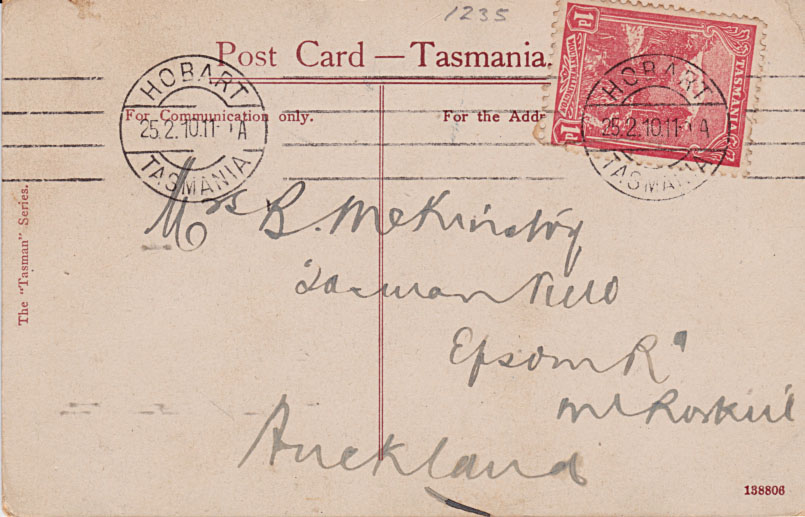 1235
Post Card — Tasmania.
1d
TASMANIA
1d
HOBART
25.2.10.11- A
TASMANIA
HOBART
25.2.10.11- A
TASMANIA
For Communication only.
For the Addr
The "Tasman" Series.
Mrs B. McKinstry
Tasman View
Epsom Rd
Mt Roskill
Auckland
138806